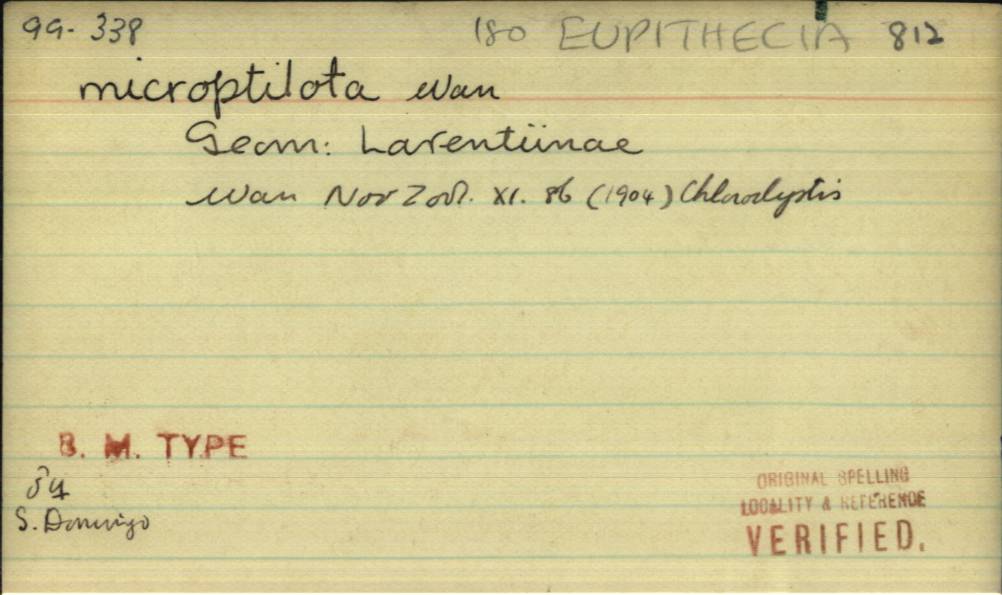 99-338 180 EUPITHECIA 812
microptilota Wan
Geom: Larentiinae
Wan Nov Zool. XI. 86 (1904) Chloroclystis
B. M. TYPE
S. Domingo
ORIGINAL SPELLING
LOCALITY & REFERENCE
VERIFIED.